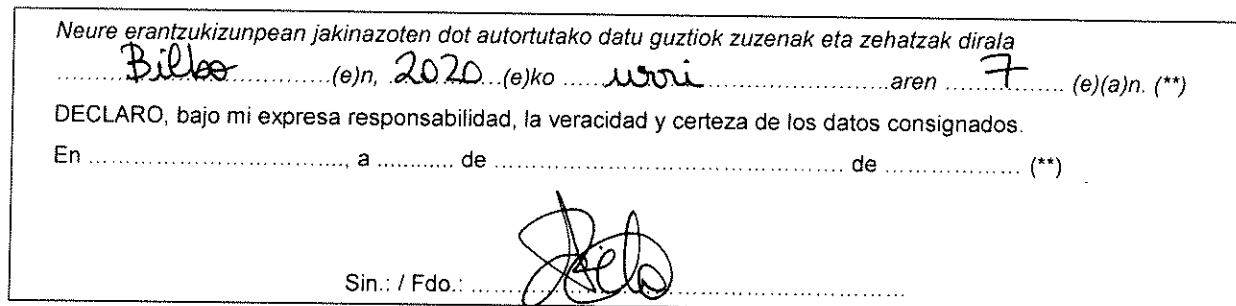 Neure erantzukizunpean jakinazoten dot autortutako datu guztiok zuzenak eta zehatzak dirala
Bilbo (e)n, 2020 (e)ko urri aren 7 (e)(a)n. (**)
DECLARO, bajo mi expresa responsabilidad, la veracidad y certeza de los datos consignados.
En ..............................., a ............ de ........................................ de .................. (**)
Sin.: / Fdo.: